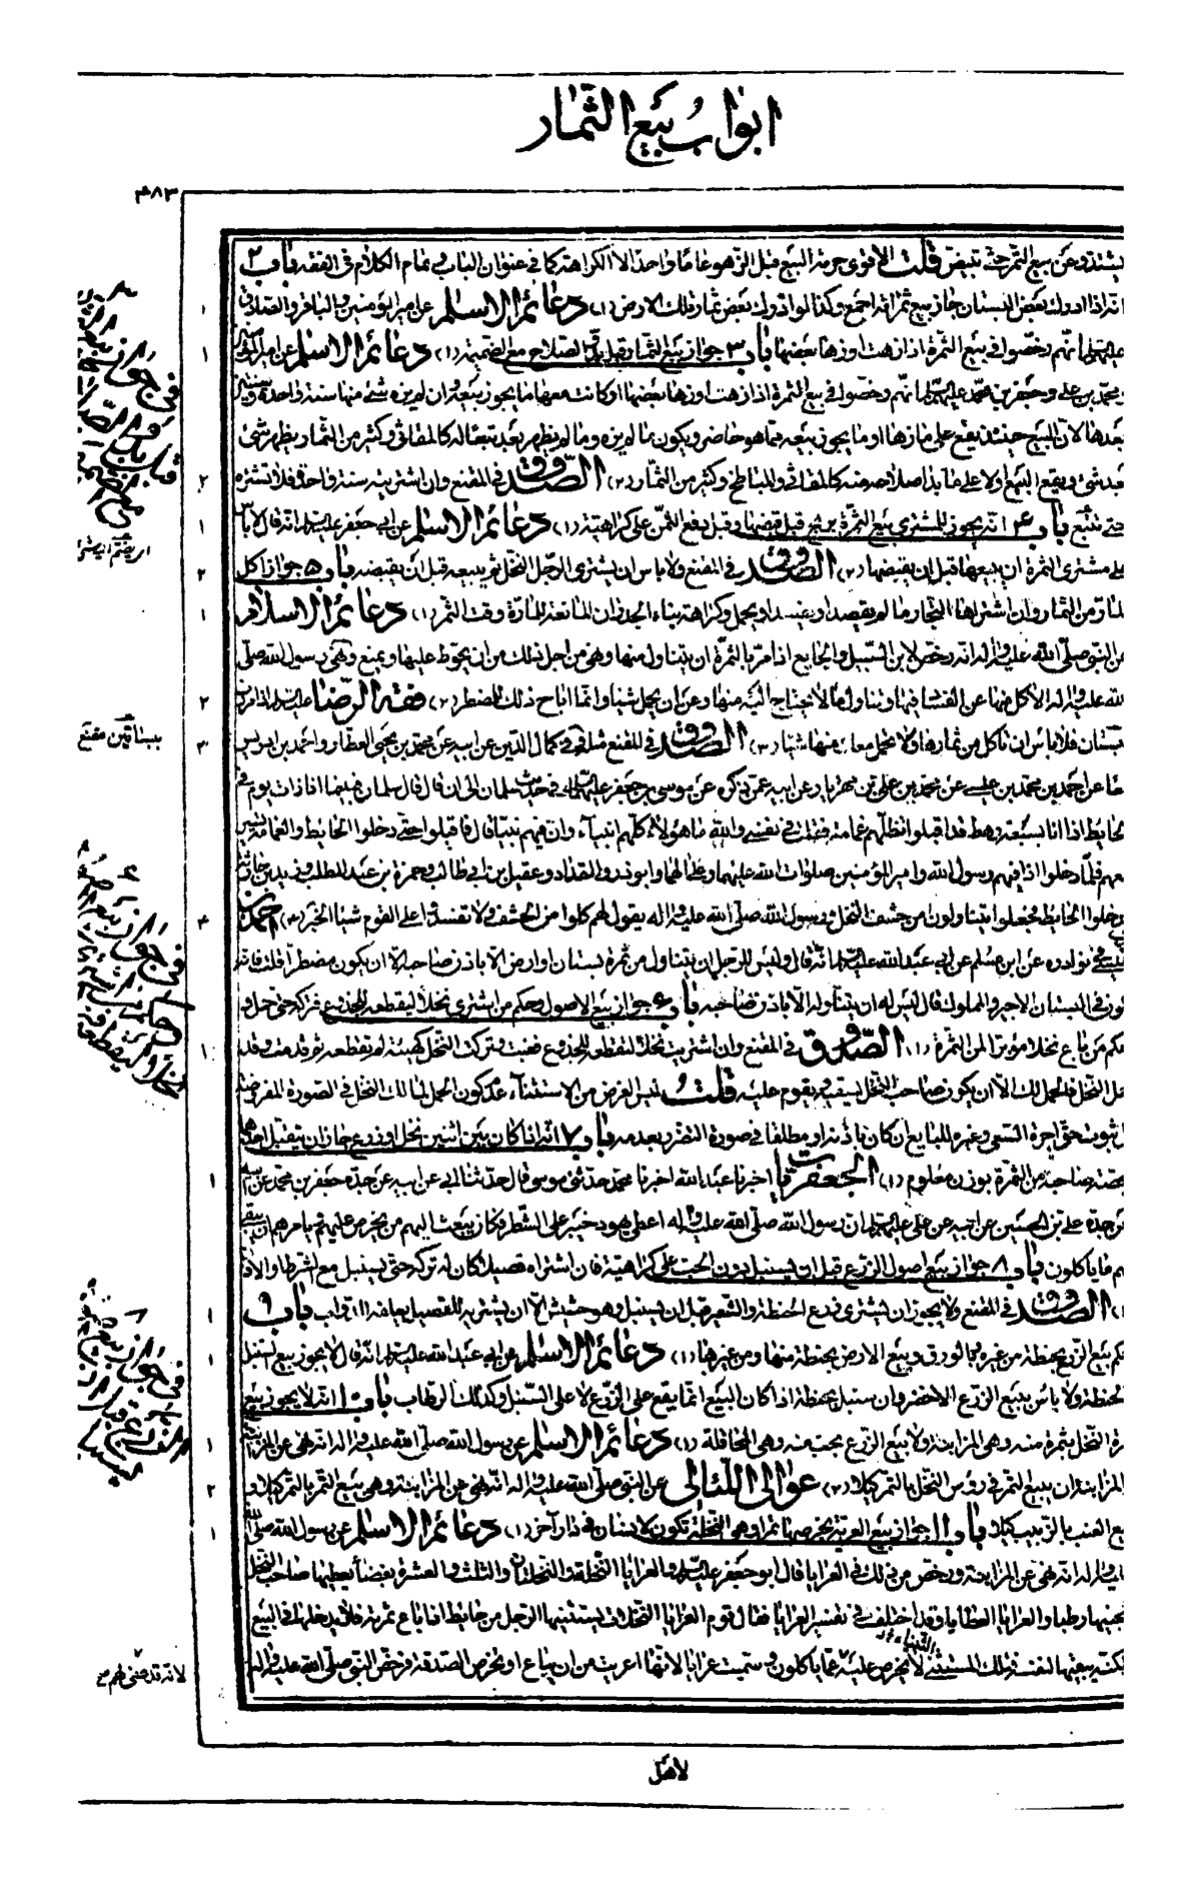 ابواب بيع الثمار
٤٨٣
يشتد وعن بيع التمر حتى تبيض قلت الأقوى حرمة البيع قبل الزهو عاما واحدا الا الكراهة كما في عنوان الباب وتمام الكلام في الفقه باب ٢
انه اذا ادرك بعض البستان جاز بيع ثمراته اجمع وكذا لو ادرك بعض ثمار تلك الارض (١) دعائم الاسلام عن امير المؤمنين والباقر والصادق
عليهم السلام انهم رخصوا في بيع الثمرة اذا زهت او زها بعضها باب ٣ جواز بيع الثمار قبل بدو الصلاح مع الضميمة (١) دعائم الاسلام عن امير المؤمنين
ومحمد بن علي وجعفر بن محمد عليهم السلام انهم رخصوا في بيع الثمرة اذا زهت او زها بعضها او كانت معها ما يجوز بيعه وان لم يزه شئ منها سنة واحدة وسنين
بعدها لان البيع حينئذ يقع على ما زها او ما يجوز بيعه مما هو حاضر ويكون ما لم يزه وما لم يظهر بعد تبعا له كالمقاثي وكثير من الثمار يظهر شئ
بعد شئ ويقع البيع اولا على ما بدا صلاحه منه كالمقاثي والمباطخ وكثير من الثمار (٢) الصدوق في المقنع وان اشتريته سنة واحدة فلا تشتره
حتى تبلغ باب ٤ انه يجوز للمشتري بيع الثمرة بربح قبل قبضها وقبل دفع الثمن على كراهية (١) دعائم الاسلام عن ابي جعفر عليه السلام انه قال لا باس
على مشتري الثمرة ان يبيعها قبل ان يقبضها (٢) الصدوق في المقنع ولا باس ان يشتري الرجل النخل ثم يبيعه قبل ان يقبضه باب ٥ جواز اكل
المارة من الثمار وان اشتراها التجار ما لم يقصد او يفسد او يحمل وكراهة بناء الجدران المانعة للمارة وقت الثمر (١) دعائم الاسلام
عن النبي صلى الله عليه واله انه رخص لابن السبيل والجايع اذا مر بالثمرة ان يتناول منها ونهى من اجل ذلك من ان يحوط عليها ويمنع ونهى رسول الله صلى
الله عليه واله الاكل منها عن الفساد فيها وتناول ما لا يحتاج اليه منها وعن ان يحمل شيئا وانما اباح ذلك للمضطر (٢) فقه الرضا عليه السلام اذا مررت
ببستان فلا باس ان تاكل من ثمارها ولا تحمل معك منها شيئا (٣) الصدوق في المقنع مثله وفي كمال الدين عن ابيه عن محمد بن يحيى العطار واحمد بن ادريس
معا عن احمد بن محمد بن عيسى عن محمد بن علي بن مهزيار عن ابيه عمن ذكره عن موسى بن جعفر عليهما السلام في حديث سلمان الى ان قال قال سلمان فبينما انا ذات يوم في
الحايط اذا انا بسبعة رهط قد اقبلوا تظلهم غمامة فقلت في نفسي والله ما هؤلاء كلهم انبياء وان فيهم نبيا قال فاقبلوا حتى دخلوا الحايط والغمامة تسير
معهم فلما دخلوا اذا فيهم رسول الله وامير المؤمنين صلوات الله عليهما وعلى آلهما وابو ذر والمقداد وعقيل بن ابي طالب وحمزة بن عبد المطلب وزيد بن حارثة
فدخلوا الحايط فجعلوا يتناولون من حشف النخل ورسول الله صلى الله عليه واله يقول لهم كلوا من الحشف ولا تفسدوا على القوم شيئا الخبر (٤) احمد بن
عيسى في نوادره عن ابن مسلم عن ابي عبد الله عليه السلام انه قال وليس للرجل ان يتناول من ثمرة بستان او ارض الا باذن صاحبه الا ان يكون مضطرا قلت فانه
يكون في البستان الاجير والمملوك قال ليس له ان يتناوله الا باذن صاحبه باب ٦ جواز بيع الاصول وحكم من اشترى نخلا ليقطعه للجذوع فتركه حتى حمل و
حكم من باع نخلا مؤبرا لمن الثمرة (١) الصدوق في المقنع وان اشتريت نخلا لتقطعه للجذوع فغبت وتركت النخل كهيئته لم تقطعه ثم قدمت وقد
حمل النخل فالحمل لك الا ان يكون صاحب النخل يسقيه ويقوم عليه قلت ليس الغرض من الاستثناء عدم كون الحمل لمالك النخل في الصورة المفروضة
بل ثبوت حق اجرة السقي وغيره للبايع ان كان باذنه او مطلقا في صورة التضرر بعدمه باب ٧ انه اذا كان بين اثنين نخل او زرع جاز ان يتقبل احدهما
بحصة صاحبه من الثمرة بوزن معلوم (١) الجعفريات اخبرنا عبد الله اخبرنا محمد حدثني موسى قال حدثنا ابي عن ابيه عن جده جعفر بن محمد عن ابيه
عن جده علي بن الحسين عن ابيه عن علي عليهم السلام ان رسول الله صلى الله عليه واله اعطى يهود خيبر على الشطر فكان يبعث اليهم من يخرص عليهم ثم يامرهم ان يبقي
لهم ما ياكلون باب ٨ جواز بيع اصول الزرع قبل ان يسنبل دون الحب على كراهية فان اشتراه قصيلا كان له تركه حتى يسنبل مع الشرط والاذن
(١) الصدوق في المقنع ولا يجوز ان يشتري زرع الحنطة والشعير قبل ان يسنبل وهو حشيش الا ان يشتريه للقصيل يعلفه الدواب باب ٩
حكم بيع الزرع بحنطة من غيره وبالورق وبيع الارض بحنطة منها ومن غيرها (١) دعائم الاسلام عن ابي عبد الله عليه السلام انه قال لا يجوز بيع السنبل
بالحنطة ولا باس ببيع الزرع الاخضر وان سنبل بحنطة اذا كان البيع انما يقع على الزرع لا على السنبل وكذلك الرطاب باب ١٠ انه لا يجوز بيع
ثمرة النخل بثمرة منه وهي المزابنة ولا بيع الزرع بحب منه وهي المحاقلة (١) دعائم الاسلام عن رسول الله صلى الله عليه واله انه نهى عن المزابنة
والمزابنة ان يبيع الثمر في رؤس النخل بالتمر كيلا (٢) عوالي اللئالي عن النبي صلى الله عليه واله انه نهى عن المزابنة وهي بيع الثمر بالتمر كيلا و
بيع العنب بالزبيب كيلا باب ١١ جواز بيع العرية بخرصها تمرا وهي النخلة تكون لانسان في دار آخر (١) دعائم الاسلام عن رسول الله صلى الله
عليه واله انه نهى عن المزابنة ورخص من ذلك في العرايا قال ابو جعفر عليه السلام والعرايا النخلة والنخلتان والثلث والعشرة يعطيها صاحب النخل
فيجنيها رطبا والعرايا العطايا وقد اختلف في تفسير العرايا فقال قوم العرايا النخلات يستثنيها الرجل من حايط اذا باع ثمرته فلا يدخلها في البيع
لكنه يبقيها لنفسه فتلك المستثنى لا يخرص عليه ما ياكلون وسميت عرايا لانها اعريت من ان يباع او تخرص الصدقة فرخص النبي صلى الله عليه واله
لاهل
في جواز بيع الثمار قبل بدو الصلاح مع الضميمة
ببساتين مقنع
٦ في جواز بيع الاصول وحكم من اشترى نخلا ليقطعه
٨ في جواز بيع اصول الزرع قبل ان يسنبل
لانه قد عفى لهم مح